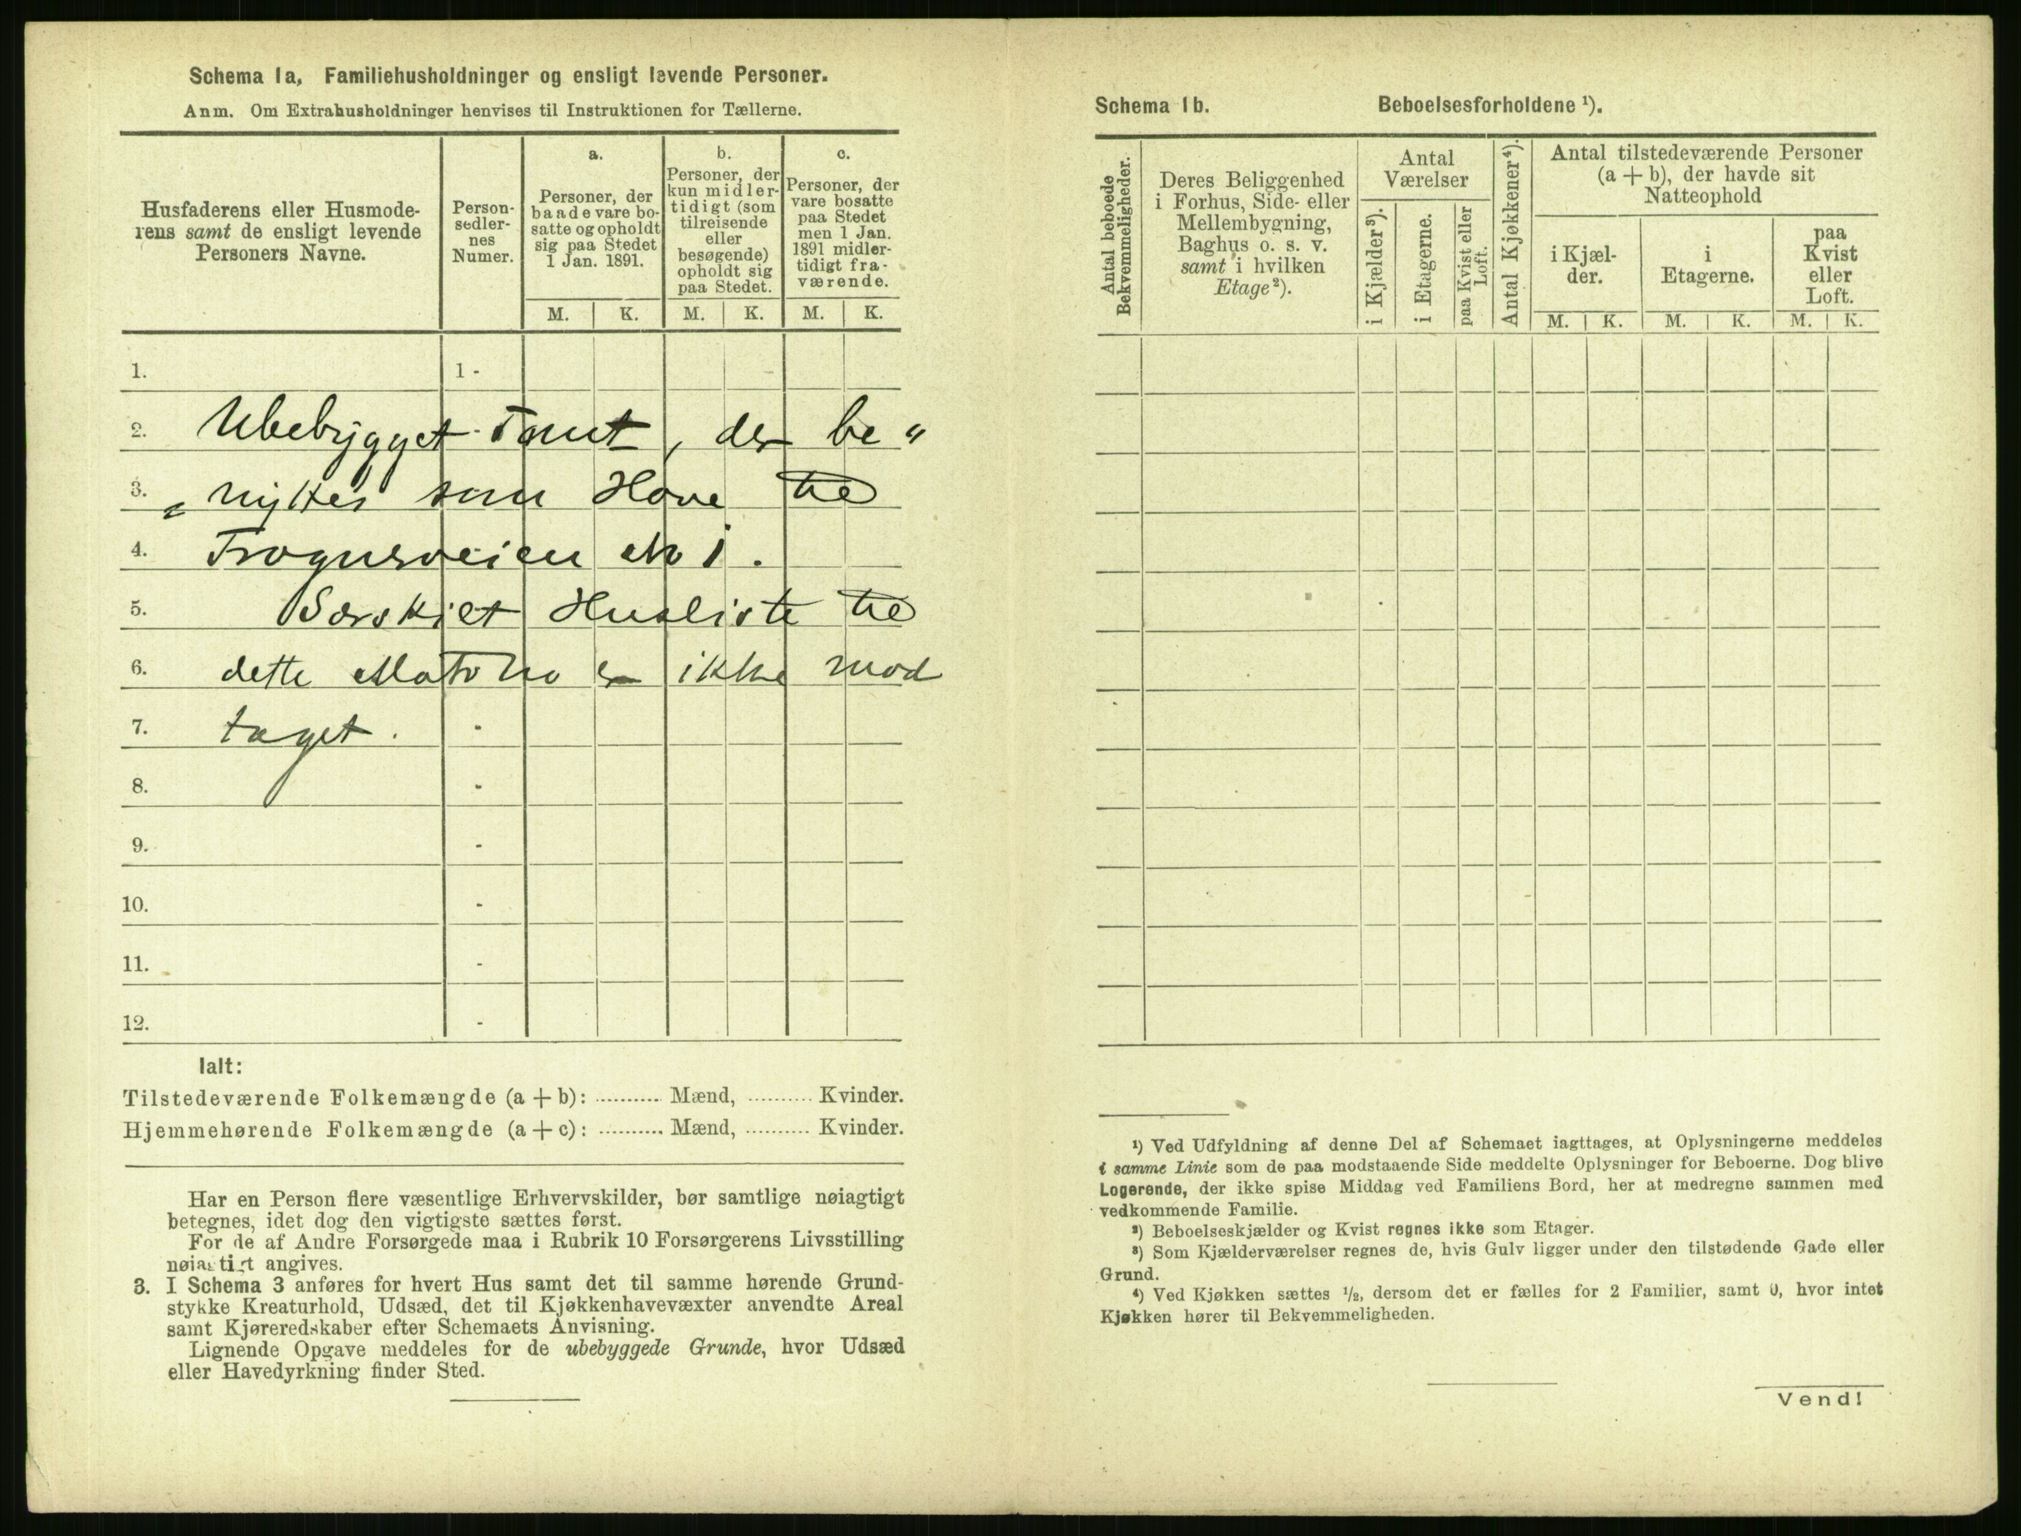 Schema 1a, Familiehusholdninger og ensligt levende Personer.
Anm. Om Extrahusholdninger henvises til Instruktionen for Tællerne.
Husfaderens eller Husmode-
rens samt de ensligt levende
Personers Navne.
Person-
sedler-
nes
Numer.
a.
Personer, der
baade vare bo-
satte og opholdt
sig paa Stedet
1 Jan. 1891.
b.
Personer, der
kun midler-
tidigt (som
tilreisende
eller
besøgende)
opholdt sig
paa Stedet.
c.
Personer, der
vare bosatte
paa Stedet
men 1 Jan.
1891 midler-
tidigt fra-
værende.
M. K. M. K. M. K.
1. 1 -
2. Ubebygget Tomt, der be"
3. „nyttes som Have til
4. Frognerveien No 1.
5. Særskilt Husliste til
6. dette Matr No er ikke mod
7. taget. -
8. -
9. -
10. -
11. -
12. -
Ialt:
Tilstedeværende Folkemængde (a + b): .......... Mænd, .......... Kvinder.
Hjemmehørende Folkemængde (a + c): .......... Mænd, .......... Kvinder.
Har en Person flere væsentlige Erhvervskilder, bør samtlige nøiagtigt
betegnes, idet dog den vigtigste sættes først.
For de af Andre Forsørgede maa i Rubrik 10 Forsørgerens Livsstilling
nøiagtigt angives.
3. I Schema 3 anføres for hvert Hus samt det til samme hørende Grund-
stykke Kreaturhold, Udsæd, det til Kjøkkenhavevæxter anvendte Areal
samt Kjøreredskaber efter Schemaets Anvisning.
Lignende Opgave meddeles for de ubebyggede Grunde, hvor Udsæd
eller Havedyrkning finder Sted.
Schema 1b. Beboelsesforholdene ¹).
Antal beboede
Bekvemmeligheder.
Deres Beliggenhed
i Forhus, Side- eller
Mellembygning,
Baghus o. s. v.
samt i hvilken
Etage²).
Antal
Værelser
i Kjælder³).
i Etagerne.
paa Kvist eller
Loft.
Antal Kjøkkener⁴).
Antal tilstedeværende Personer
(a + b), der havde sit
Natteophold
i Kjæl-
der.
i
Etagerne.
paa
Kvist
eller
Loft.
M. K. M. K. M. K.
¹) Ved Udfyldning af denne Del af Schemaet iagttages, at Oplysningerne meddeles
i samme Linie som de paa modstaaende Side meddelte Oplysninger for Beboerne. Dog blive
Logerende, der ikke spise Middag ved Familiens Bord, her at medregne sammen med
vedkommende Familie.
²) Beboelseskjælder og Kvist regnes ikke som Etager.
³) Som Kjælderværelser regnes de, hvis Gulv ligger under den tilstødende Gade eller
Grund.
⁴) Ved Kjøkken sættes ½, dersom det er fælles for 2 Familier, samt 0, hvor intet
Kjøkken hører til Bekvemmeligheden.
Vend!